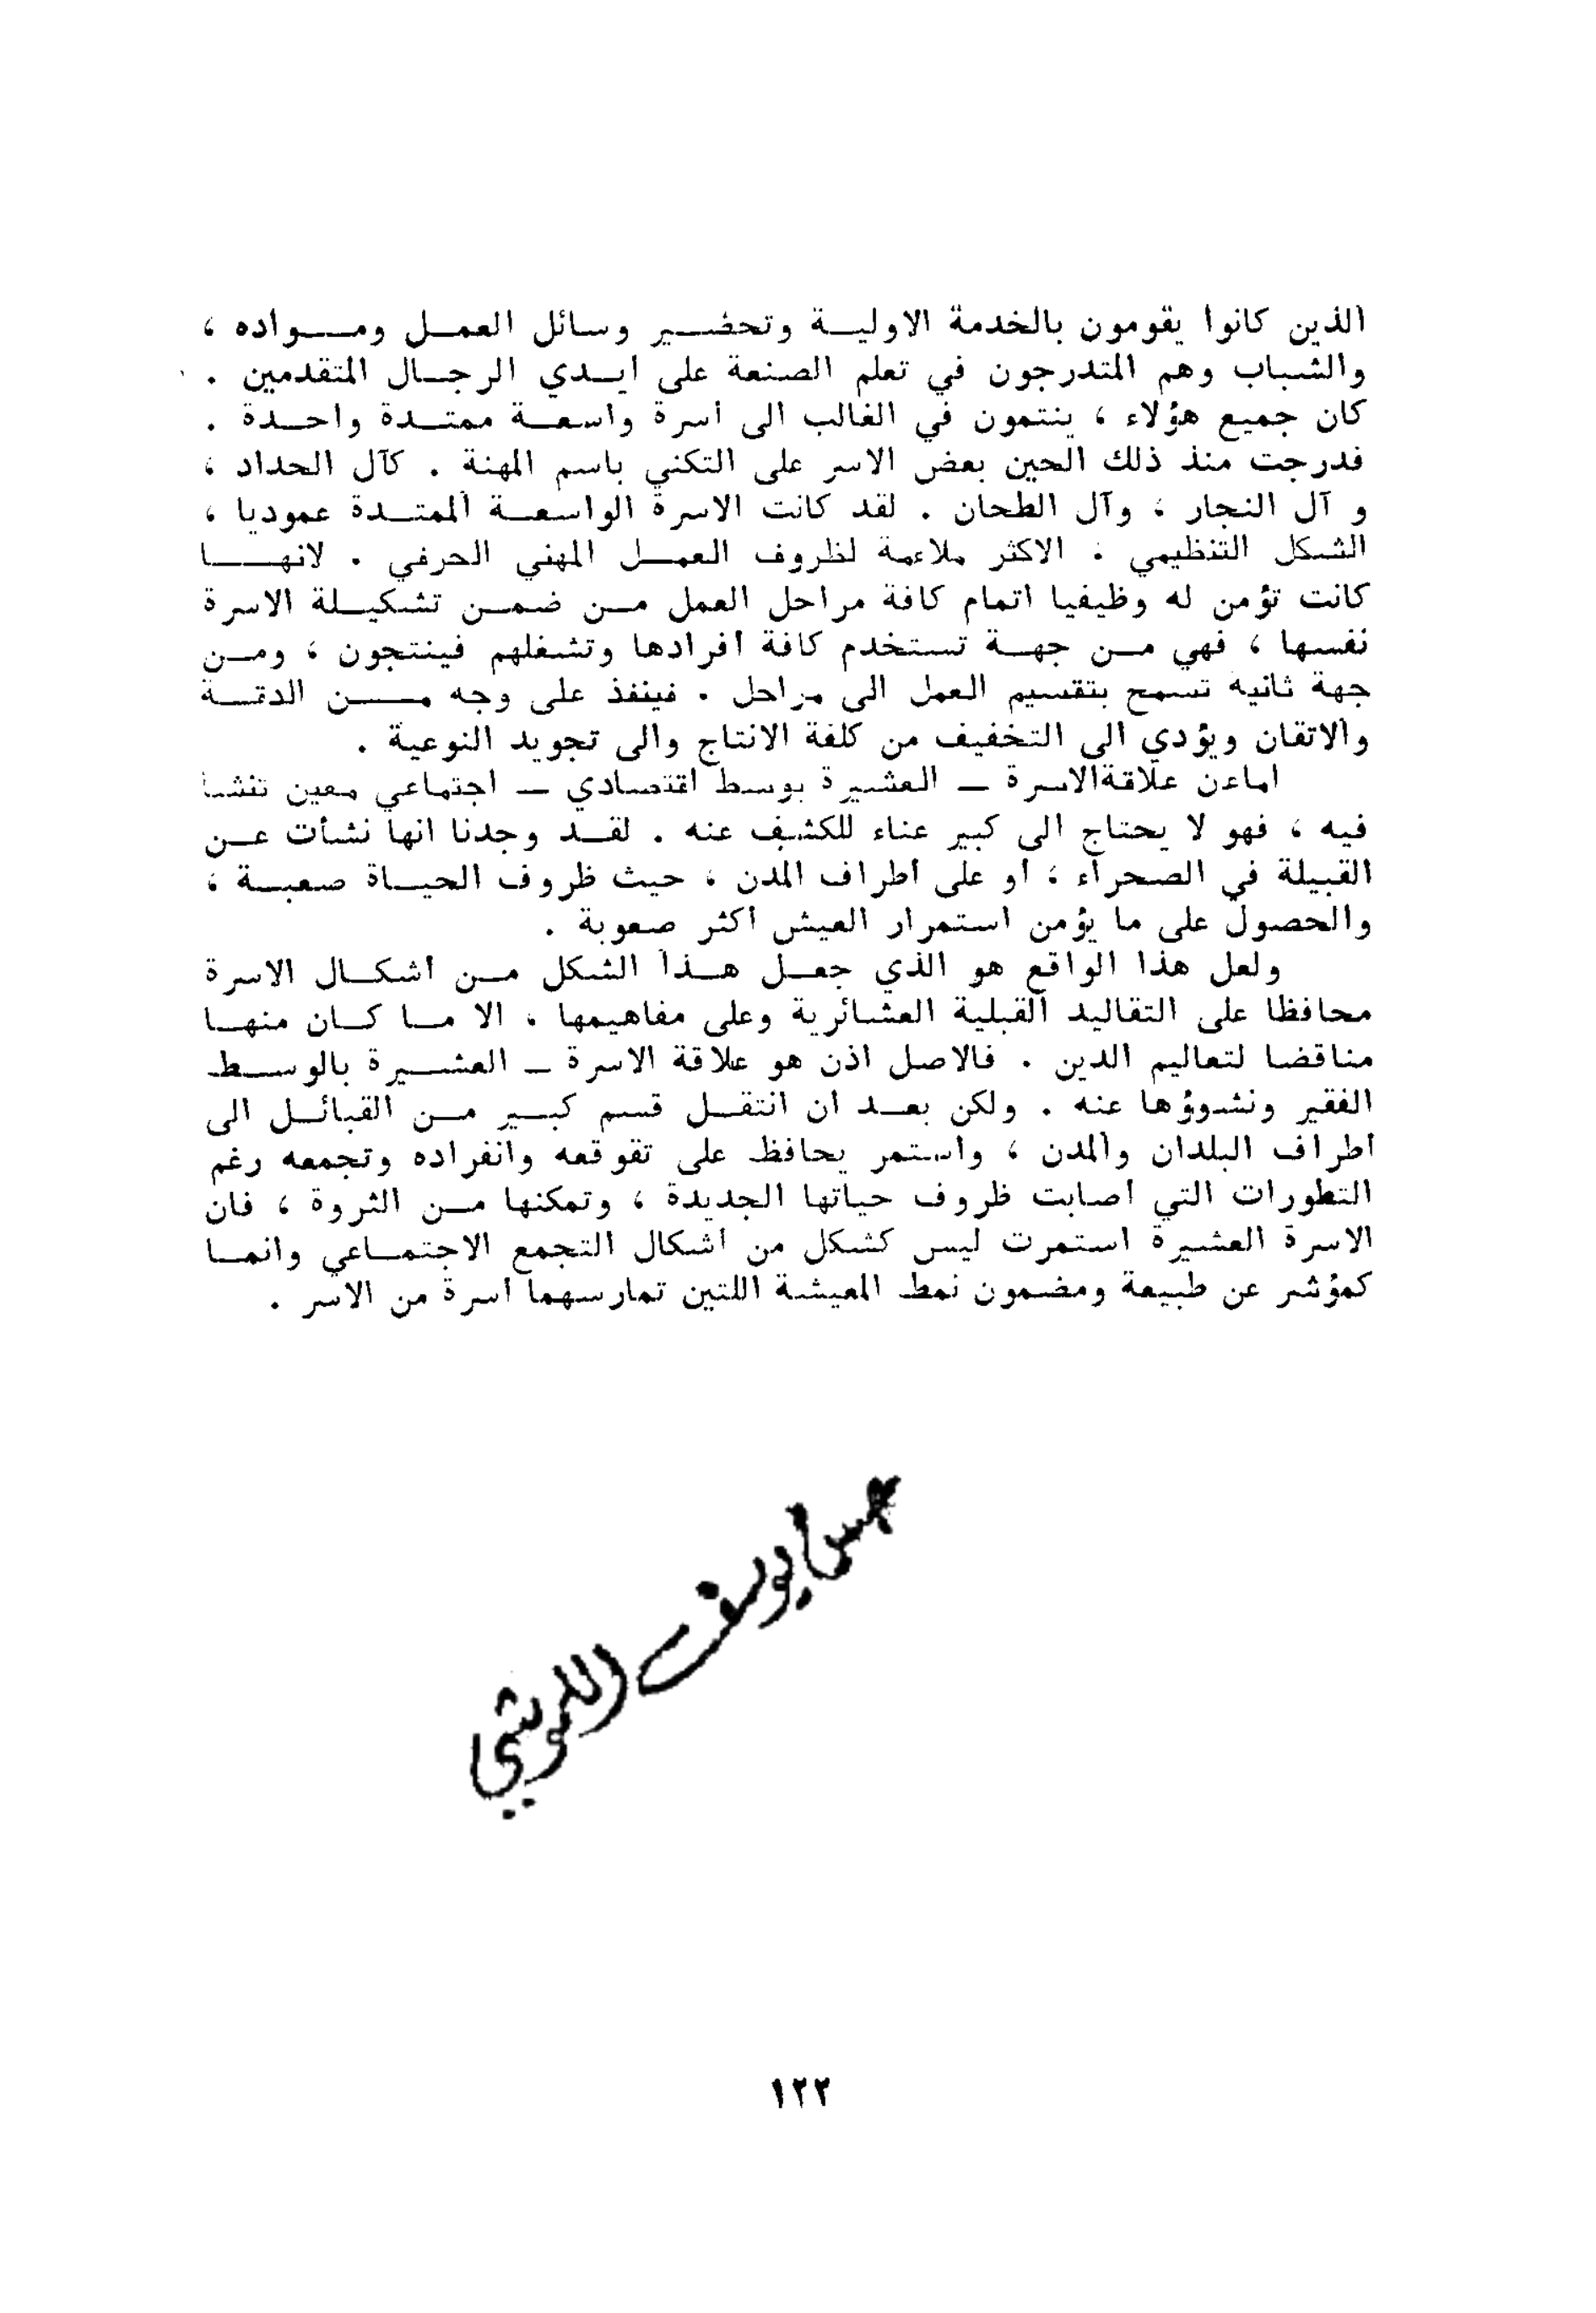 الذين كانوا يقومون بالخدمة الاولية وتحضير وسائل العمل ومواده ،
والشباب وهم المتدرجون في تعلم الصنعة على ايدي الرجال المتقدمين .
كان جميع هؤلاء ، ينتمون في الغالب الى أسرة واسعة ممتدة واحدة .
فدرجت منذ ذلك الحين بعض الاسر على التكني باسم المهنة . كآل الحداد ،
و آل النجار ، وآل الطحان . لقد كانت الاسرة الواسعة الممتدة عموديا ،
الشكل التنظيمي . الاكثر ملاءمة لظروف العمل المهني الحرفي . لانها
كانت تؤمن له وظيفيا اتمام كافة مراحل العمل من ضمن تشكيلة الاسرة
نفسها ، فهي من جهة تستخدم كافة افرادها وتشغلهم فينتجون ، ومن
جهة ثانية تسمح بتقسيم العمل الى مراحل . فينفذ على وجه من الدقة
والاتقان ويؤدي الى التخفيف من كلفة الانتاج والى تجويد النوعية .
اماعن علاقةالاسرة — العشيرة بوسط اقتصادي — اجتماعي معين تنشأ
فيه ، فهو لا يحتاج الى كبير عناء للكشف عنه . لقد وجدنا انها نشأت عن
القبيلة في الصحراء ، او على أطراف المدن ، حيث ظروف الحياة صعبة ،
والحصول على ما يؤمن استمرار العيش اكثر صعوبة .
ولعل هذا الواقع هو الذي جعل هذا الشكل من اشكال الاسرة
محافظا على التقاليد القبلية العشائرية وعلى مفاهيمها . الا ما كان منها
مناقضا لتعاليم الدين . فالاصل اذن هو علاقة الاسرة — العشيرة بالوسط
الفقير ونشوؤها عنه . ولكن بعد ان انتقل قسم كبير من القبائل الى
اطراف البلدان والمدن ، واستمر يحافظ على تقوقعه وانفراده وتجمعه رغم
التطورات التي اصابت ظروف حياتها الجديدة ، وتمكنها من الثروة ، فان
الاسرة العشيرة استمرت ليس كشكل من اشكال التجمع الاجتماعي وانما
كمؤشر عن طبيعة ومضمون نمط المعيشة اللتين تمارسهما اسرة من الاسر .
يوسف
١٢٢